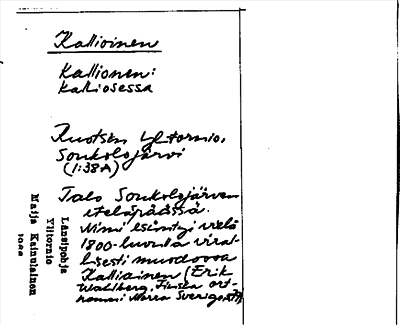 Kallioinen
Kallionen:
Kalliosessa
Ruotsin Ylitornio,
Soukolojärvi
(1:38A)
Talo Soukolojärven
eteläpäässä.
Nimi esiintyi vielä
1800-luvulla viral-
lisesti muodossa
Kallioinen (Erik
Wahlberg, Finska ort-
namn i Norra Sverige,
Länsipohja
Ylitornio
Maija Kainulainen